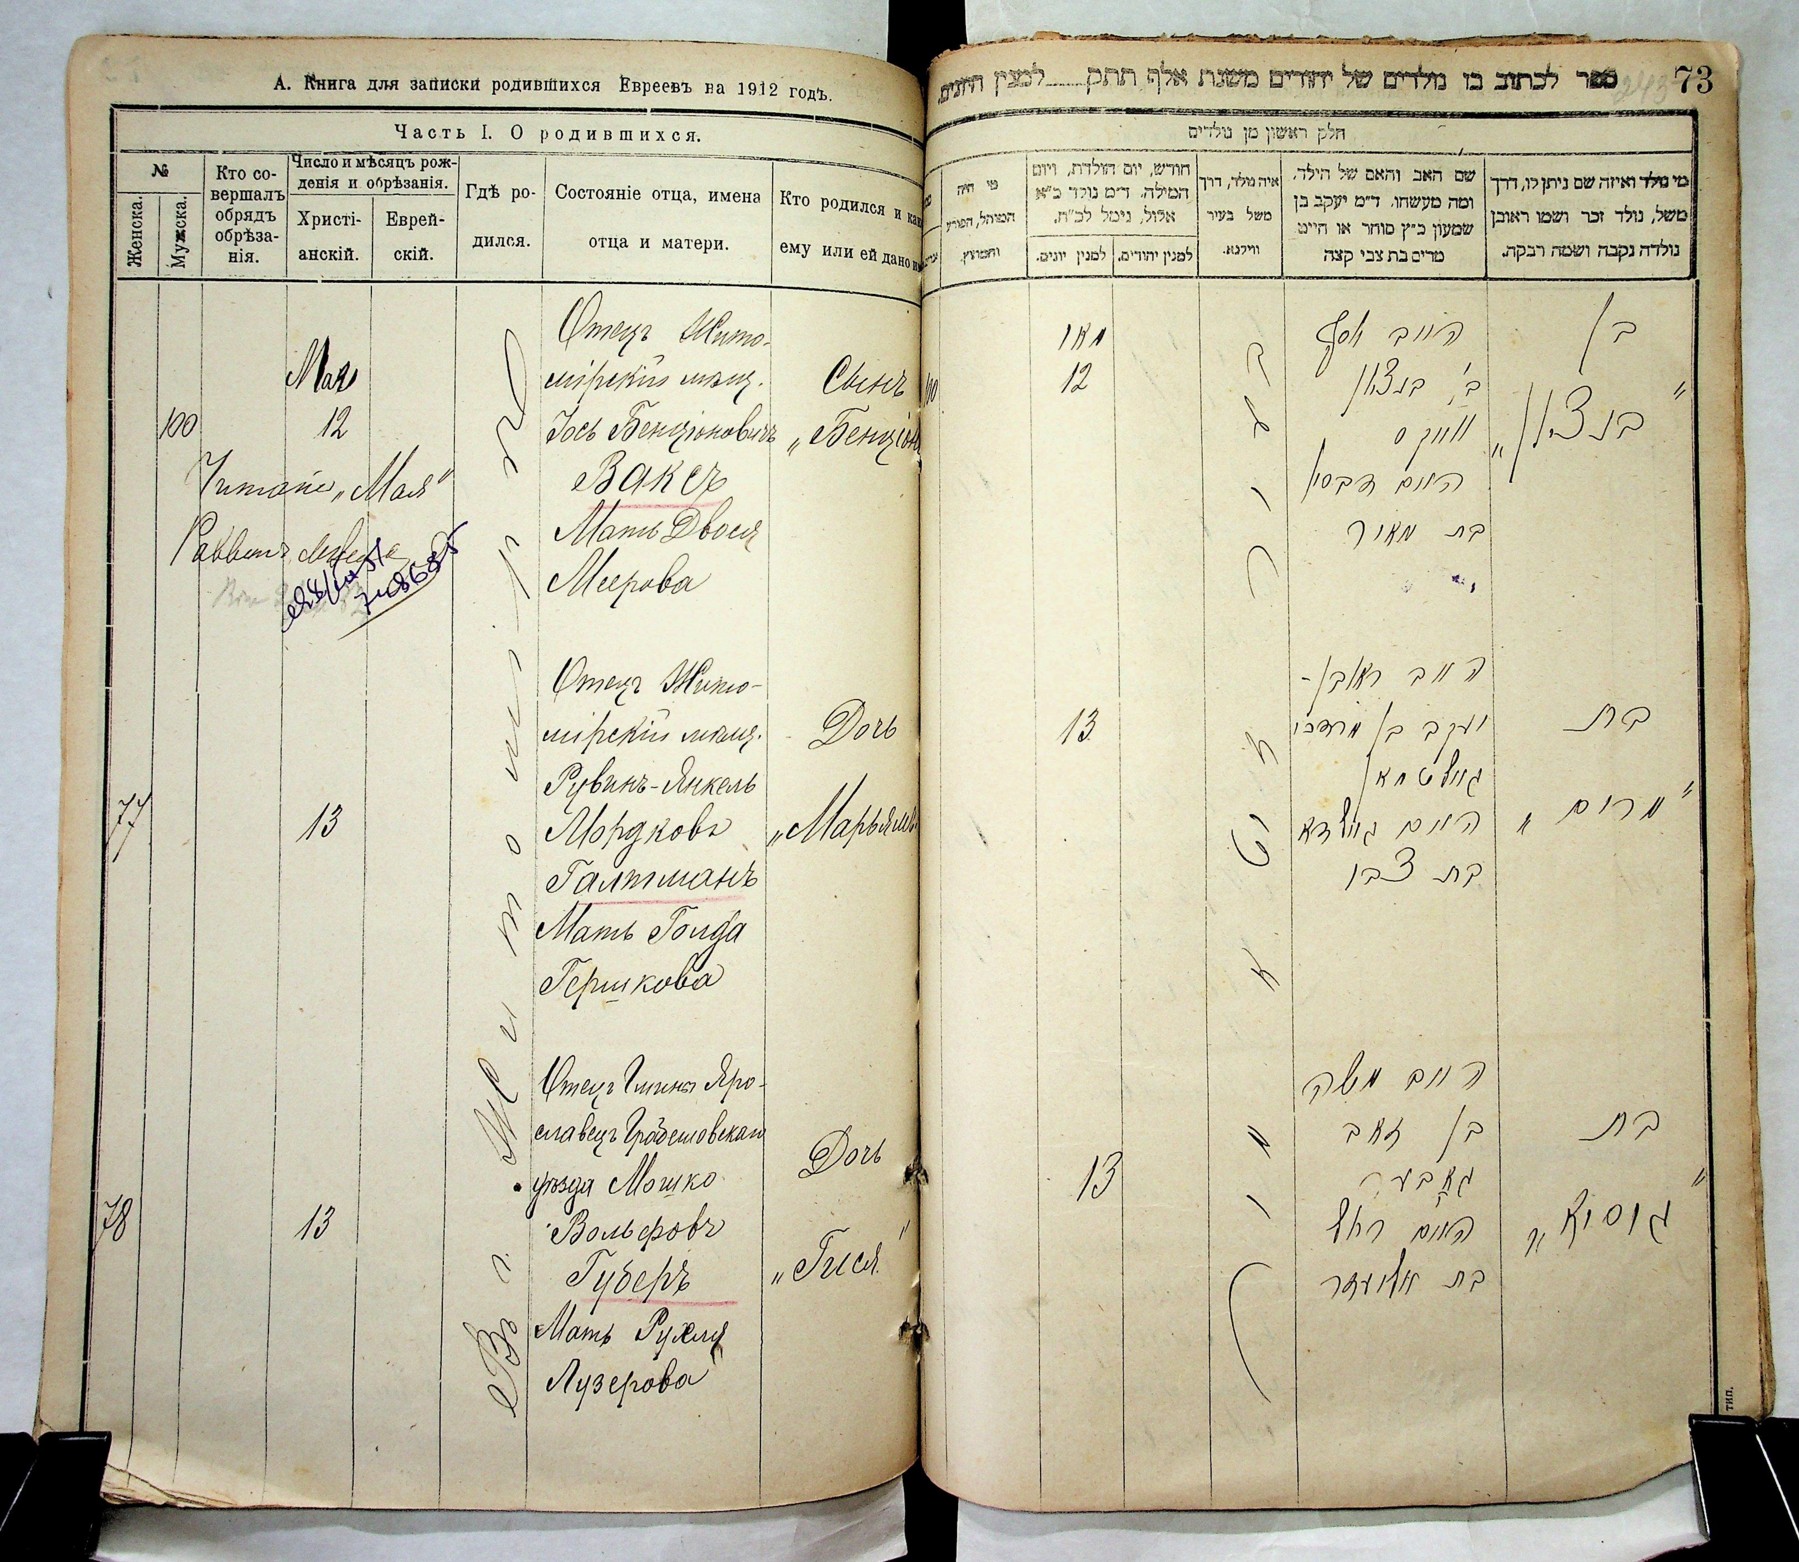 А. Книга для записки родившихся Евреевъ на 1912 годъ.
Часть I. О родившихся.
№
Женска.
Мужска.
Кто со-
вершалъ
обрядъ
обрѣза-
нія.
Число и мѣсяцъ рож-
денія и обрѣзанія.
Христі-
анскій.
Еврей-
скій.
Гдѣ ро-
дился.
Состояніе отца, имена
отца и матери.
Кто родился и как
ему или ей дано и
Мая
100
12
Читать „Мая“
Раввинъ
Въ г. Житомирѣ
Отецъ Жито-
мірскій мѣщ.
Іось Бенціоновичъ
Ваксъ
Мать Двося
Меерова
Сынъ
„Бенціонъ
77
13
Отецъ Жито-
мірскій мѣщ.
Рувинъ-Янкель
Мордковъ
Галтманъ
Мать Голда
Гершкова
Дочь
„Марьямъ
78
13
Отецъ Яро-
славецъ
уѣзда Мошко
Вольфовъ
Губеръ
Мать Рухля
Лузерова
Дочь
„Гися“
ספר לכתוב בו נולדים של יהודים משנת אלף תתק למנין היונים.
73
חלק ראשון מן נולדים
מי נולד ואיזה שם ניתן לו, דרך
משל, נולד זכר ושמו ראובן
נולדה נקבה ושמה רבקה.
שם האב והאם של הילד,
ומה מעשהו, ד״מ יעקב בן
שמעון כ״ץ סוחר או חייט
מרים בת צבי קצה
איה נולד, דרך
משל בעיר
ווילנא.
חודש, יום הולדת, ויום
המילה. ד״מ נולד כ״א
אלול, נימל לכ״ח.
למנין יהודים.
למנין יונים.
מי היה
המוהל, הפורע
והמוצץ.
בן
„בנציון“
האב יוסף
ב״ר בנציון
וואקס
האם דבסיא
בת מאיר
מאי
12
100
בת
„מרים“
האב ראובן-
יעקב בן מרדכי
גאלטמאן
האם גאלדא
בת צבי
13
בת
„גיסיא“
האב משה
בן זאב
גובער
האם רחל
בת אליעזר
13
тип.